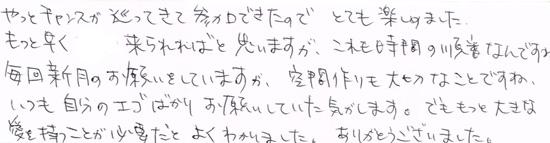 やっとチャンスが巡ってきて参加できたので とても楽しめました。
もっと早く 来られればと思いますが、これも時間の順番なんですね
毎回新月のお願いをしていますが、空間作りも大切なことですね、
いつも自分のエゴばかりお願いしていた気がします。でももっと大きな
愛を持つことが必要だとよくわかりました。ありがとうございました。